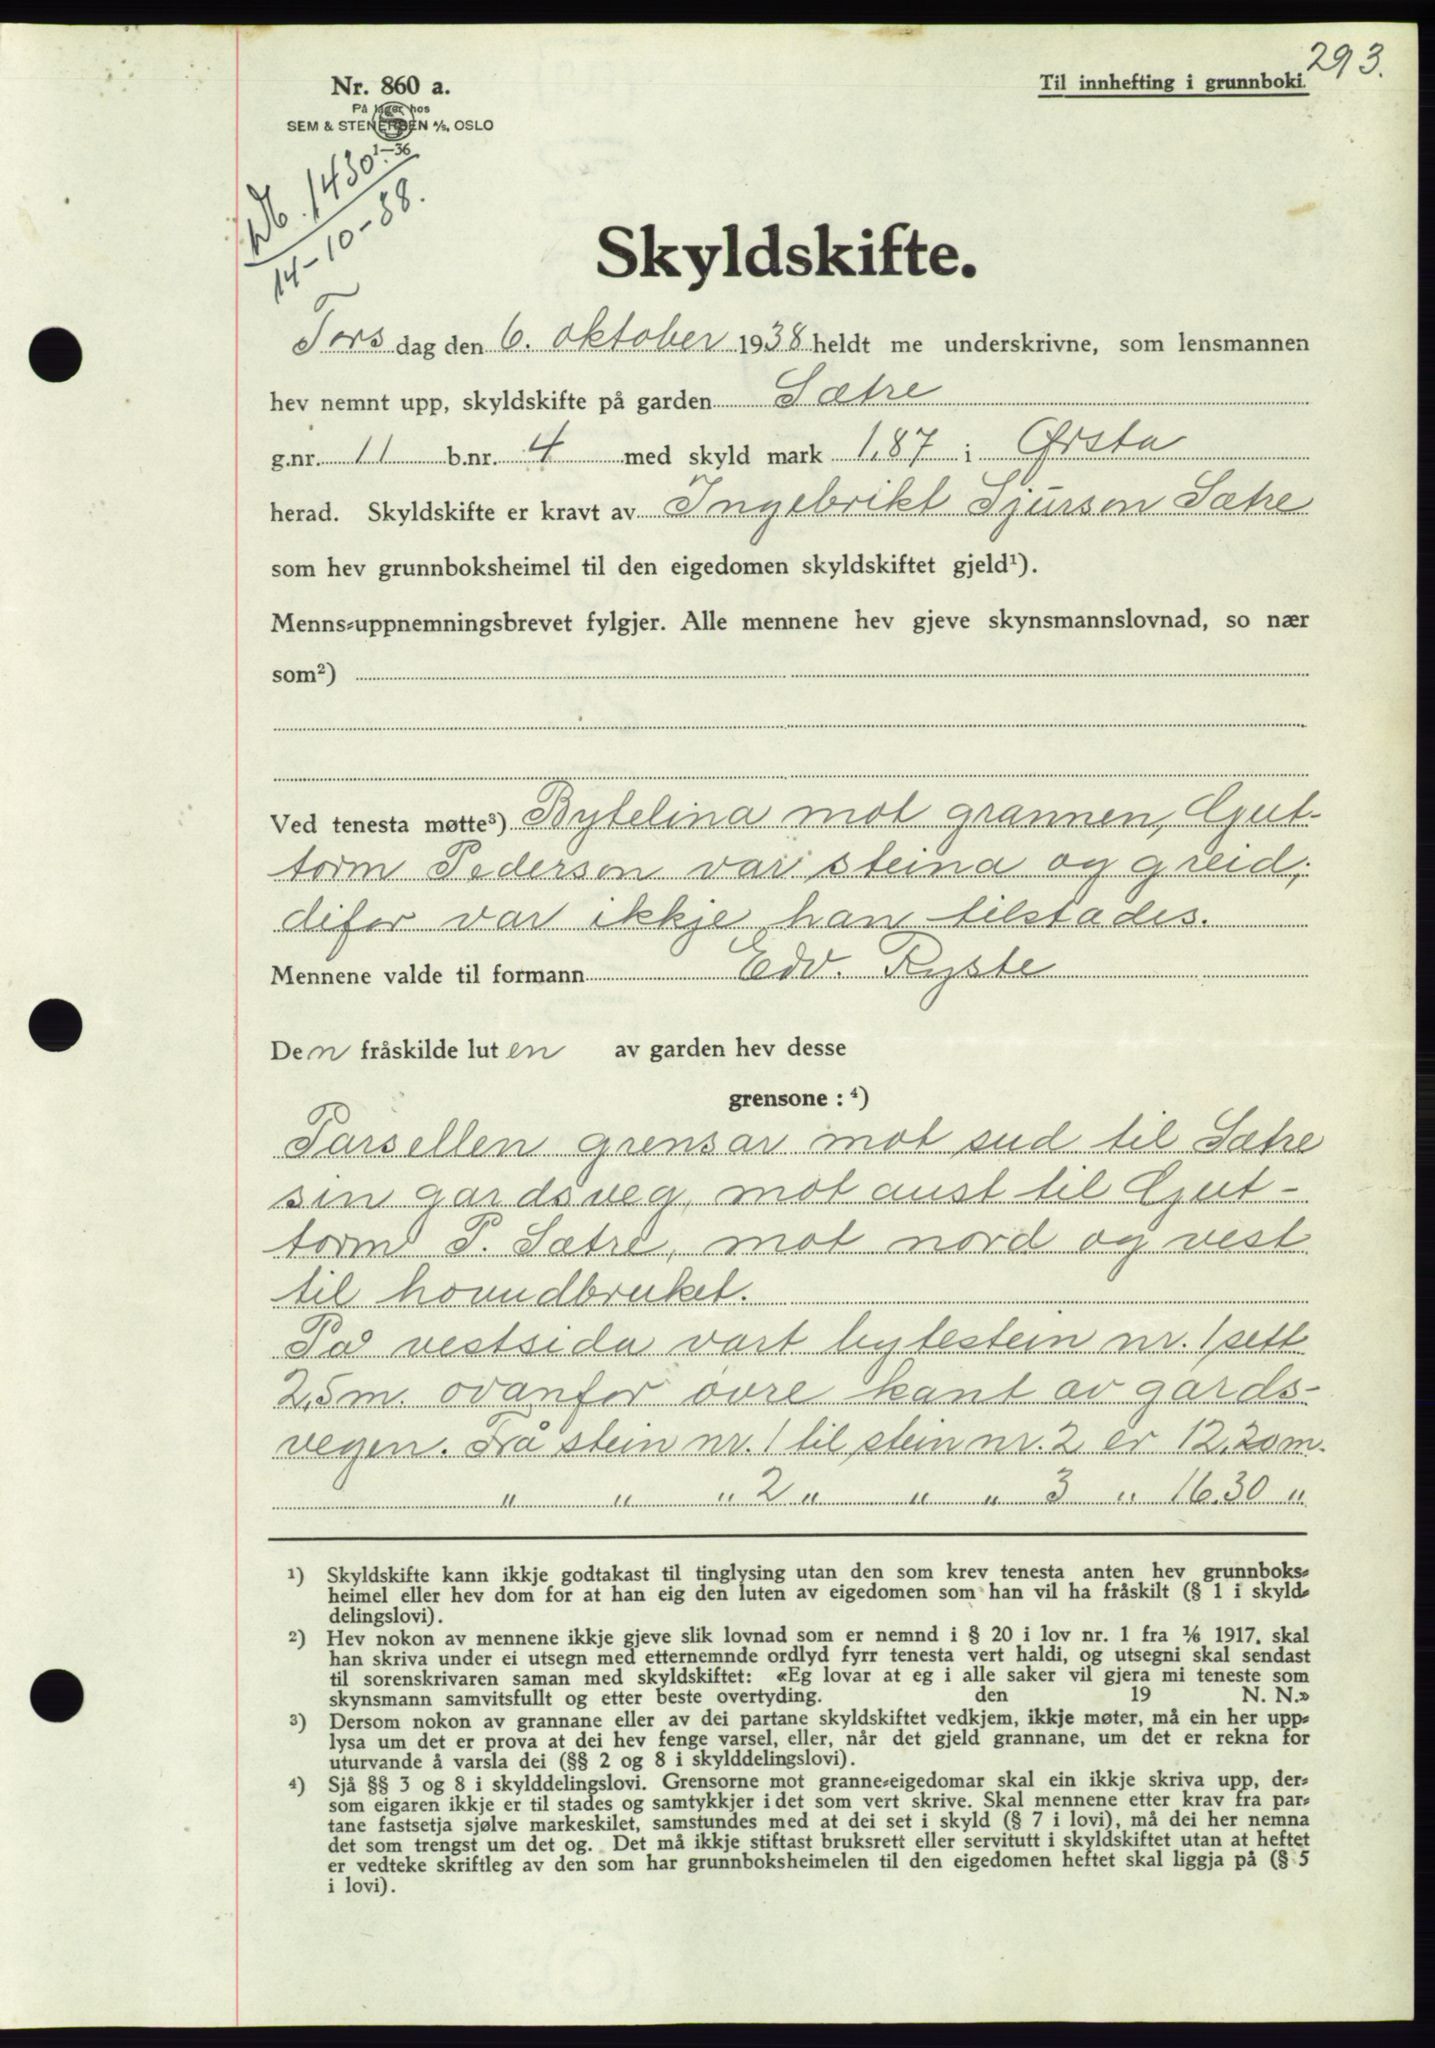 293.
Nr. 860 a.
Til innhefting i grunnboki.
På lager hos
SEM & STENERSEN A/S, OSLO
1—36
Db. 1430.
14-10-38.
Skyldskifte.
Tors dag den 6. oktober 1938 heldt me underskrivne, som lensmannen
hev nemnt upp, skyldskifte på garden Sætre
g.nr. 11 b.nr. 4 med skyld mark 1,87 i Ørsta
herad. Skyldskifte er kravt av Ingebrikt Sjurson Sætre
som hev grunnboksheimel til den eigedomen skyldskiftet gjeld¹).
Menns-uppnemningsbrevet fylgjer. Alle mennene hev gjeve skynsmannslovnad, so nær
som²)
Ved tenesta møtte³) Bytelina mot grannen, Gjut-
torm Pederson var steina og greid;
difor var ikkje han tilstades.
Mennene valde til formann Edv. Ryste
Den fråskilde luten av garden hev desse
grensone : ⁴)
Parsellen grensar mot sud til Sætre
sin gardsveg, mot aust til Gjut-
torm P. Sætre, mot nord og vest
til hovudbruket.
På vestsida vart bytestein nr. 1 sett
2,5 m. ovanfor øvre kant av gards-
vegen. Frå stein nr. 1 til stein nr. 2 er 12,20 m.
" " " 2 " " " 3 " 16.30 "
¹) Skyldskifte kann ikkje godtakast til tinglysing utan den som krev tenesta anten hev grunnboks-
heimel eller hev dom for at han eig den luten av eigedomen som han vil ha fråskilt (§ 1 i skyld-
delingslovi).
²) Hev nokon av mennene ikkje gjeve slik lovnad som er nemnd i § 20 i lov nr. 1 fra 1/6 1917, skal
han skriva under ei utsegn med etternemnde ordlyd fyrr tenesta vert haldi, og utsegni skal sendast
til sorenskrivaren saman med skyldskiftet: «Eg lovar at eg i alle saker vil gjera mi teneste som
skynsmann samvitsfullt og etter beste overtyding. den 19 N. N.»
³) Dersom nokon av grannane eller av dei partane skyldskiftet vedkjem, ikkje møter, må ein her upp-
lysa um det er prova at dei hev fenge varsel, eller, når det gjeld grannane, um det er rekna for
uturvande å varsla dei (§§ 2 og 8 i skylddelingslovi).
⁴) Sjå §§ 3 og 8 i skylddelingslovi. Grensorne mot granne-eigedomar skal ein ikkje skriva upp, der-
som eigaren ikkje er til stades og samtykkjer i det som vert skrive. Skal mennene etter krav fra par-
tane fastsetja sjølve markeskilet, samstundes med at dei set i skyld (§ 7 i lovi), må dei her nemna
det som trengst um det og. Det må ikkje stiftast bruksrett eller servitutt i skyldskiftet utan at heftet
er vedteke skriftleg av den som har grunnboksheimelen til den eigedomen heftet skal liggja på (§ 5
i lovi).